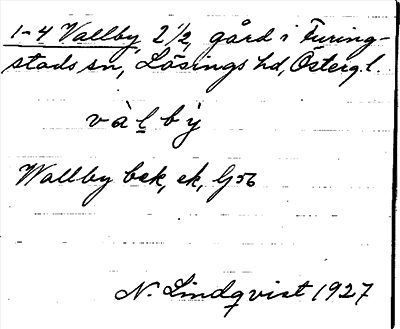 1-4 Vallby, 2 1/2 gård i Furing-
stads sn, Lösings hd, Österg. l.
v à l b ỳ
Wallby bsk, ek, Gsb
N. Lindqvist 1927